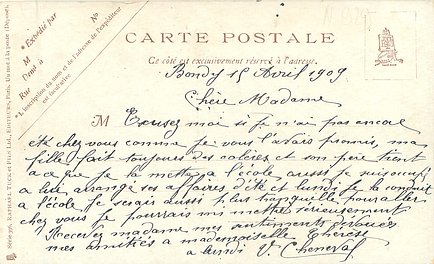 CARTE POSTALE
Ce côté est exclusivement réservé à l'adresse.
* Expédié par
M
Demt à
Rue
No
* L'inscription du nom et de l'adresse de l'expéditeur
est facultative
Série 396, RAPHAEL TUCK et FILS, Ld., EDITEURS, Paris. Un mot à la poste (Déposé).
Bondy 15 Avril 1909
Chère Madame
M Excusez moi si je n'ai pas encore
été chez vous comme je vous l'avais promis, ma
fille fait toujours des colères et son père tient
a ce que je la mette a l'école aussi je
a lui arrangé ses affaires d'été et lundi je la conduit
a l'école je serais aussi plus tranquille pour aller
chez vous je pourrais me mettre sérieusement
Recevez madame mes sentiments dévoués
mes amitiés a mademoiselle Thérèse
a lundi V. Cheneval